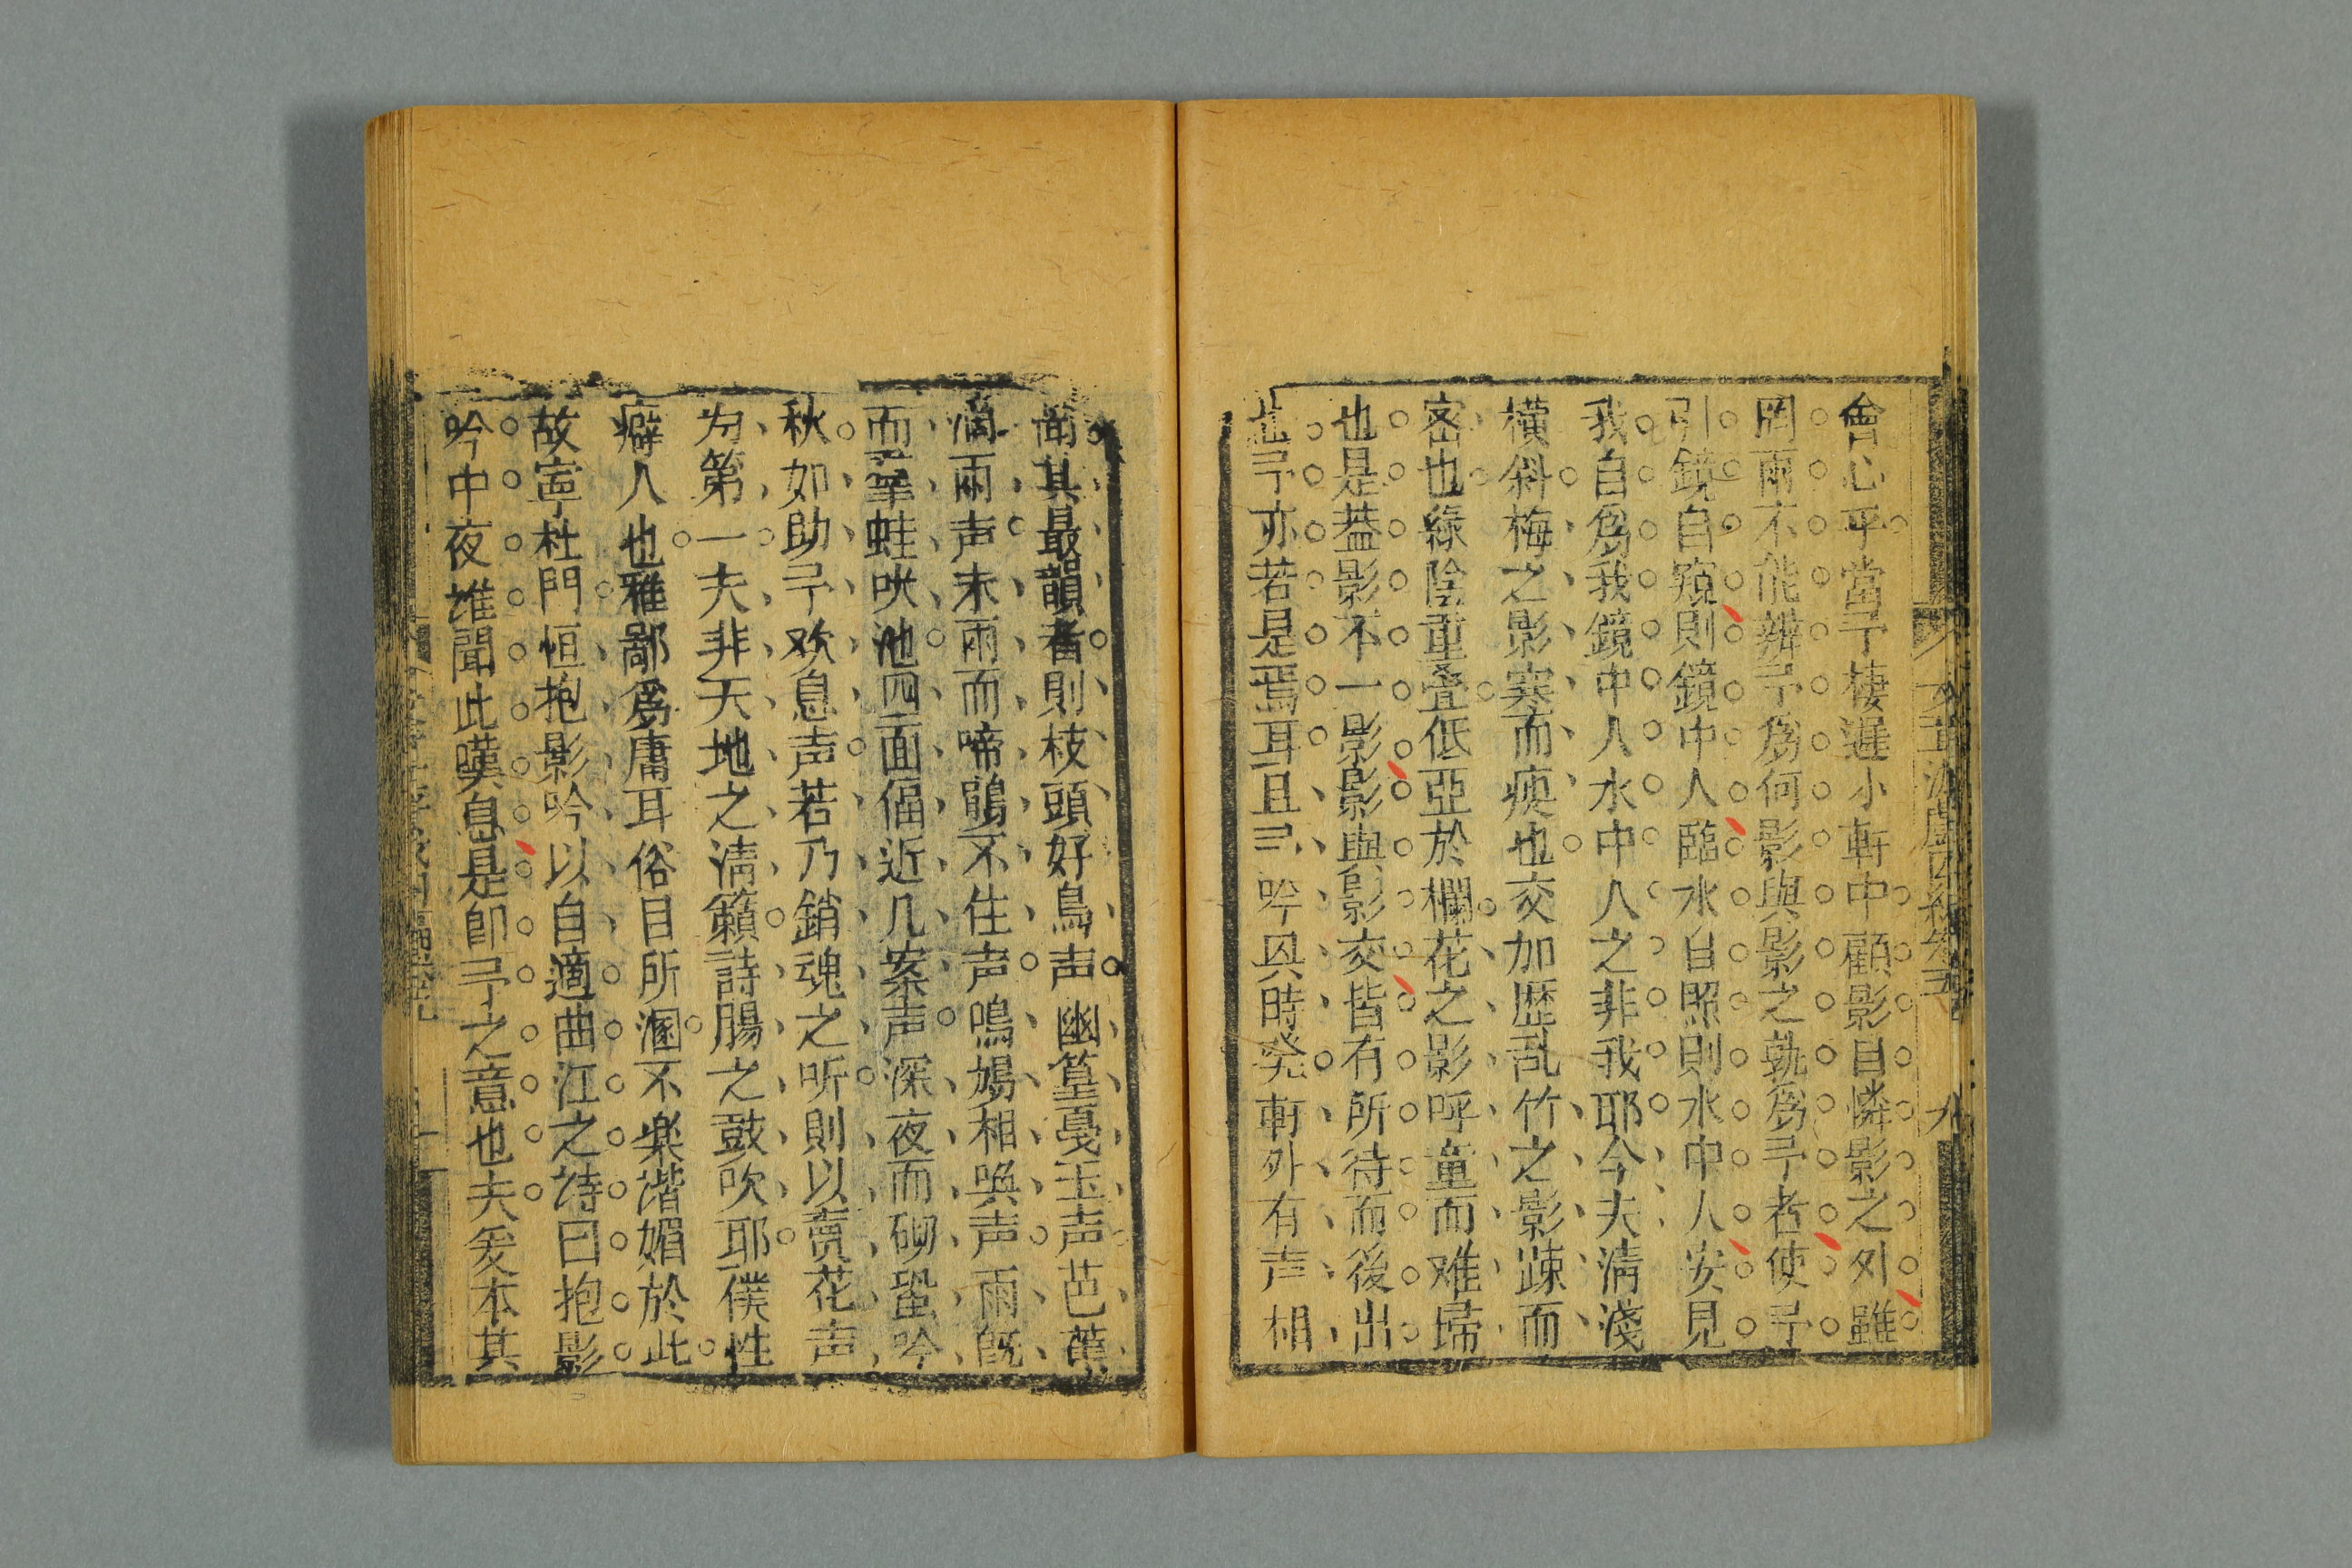 會心乎當予棲遲小軒中顧影自憐影之外雖
罔兩不能辨予為何影與影之孰為予者使予
引鏡自窺則鏡中人臨水自照則水中人安見
我自為我鏡中人水中人之非我耶今夫清淺
橫斜梅之影寒而瘐也交加歴乱竹之影疎而
密也綠陰重疊低亞於欄花之影呼童而难歸
也是葢影不一影影與影交皆有所待而後出
也予亦若是焉耳且予吟興時発軒外有声相
聞其最韻者則枝頭好鳥声幽篁戞玉声芭蕉
滴雨声未雨而啼鵑不住声鳴鳩相喚声雨既
而羣蛙吠池四面偪近几案声深夜而砌蛩吟
秋如助予欢息声若乃銷魂之听則以賣花声
为第一夫非天地之清籟詩腸之鼓吹耶僕性
癖人也雅鄙為庸耳俗目所溷不楽谐媚於此
故寧杜門恒抱影吟以自適曲江之詩曰抱影
吟中夜谁聞此嘆息是即予之意也夫爰本其